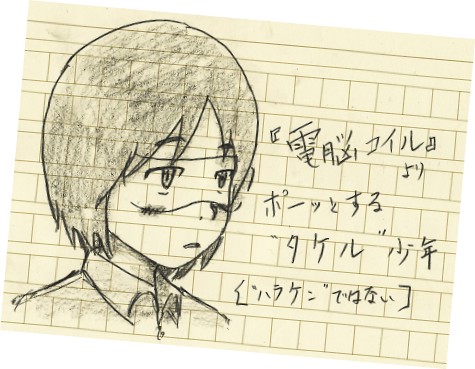 『電脳コイル』
より
ボーッとする
"タケル"少年
["ハラケン"ではない]